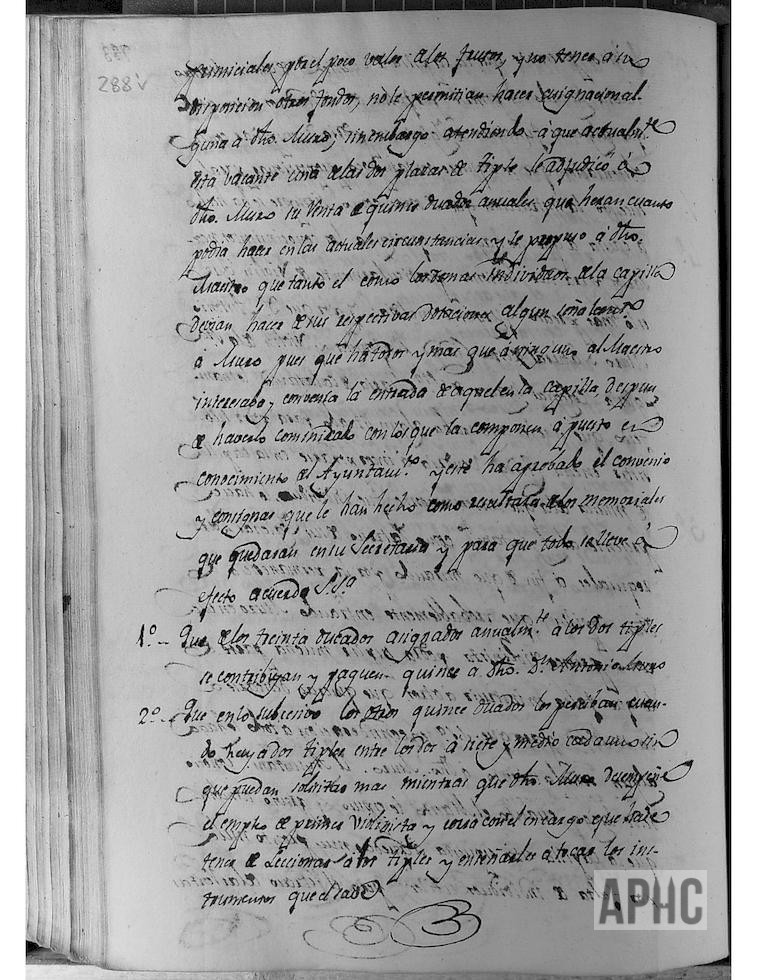 288v
primiciales por el poco valor de los frutos, y no tener á su
disposicion otros fondos, no le permitian hacer asignacion al-
guna a dho. Muro; sin embargo atendiendo á que actualmte.
está vacante una de las dos plazas de tiple le adjudicó á
dho. Muro su Renta de quince ducados anuales, que heran cuanto
podia hacer en las actuales circunstancias y se propuso á dho.
Maestro que tanto el como los demas Individuos de la capilla
devian hacer de sus respectivas Dotaciones algun señalamto.
á Muro pues que há todos y mas que á ninguno al Maestro
interesaba, y convenia la entrada de aquel en la capilla, despues
de haverlo cominicado con los que la componen á puesto en
conocimiento del Ayuntamto. y este ha aprobado el convenio
y consignas que le han hecho como resultará de los memoriales
que quedaran en su Secretaria y para que todo se lleve á
efecto acuerda S.Sa.
1º.. Que de los treinta ducados asignados anualmte. a los dos tiples
se contribuyan y paguen quince a dho. Dn. Antonio Muro
2º.. Que en lo subcesivo los otros quince ducados los perciban cuan-
do haya dos tiples entre los dos á siete y medio cada uno sin
que puedan solicitar mas mientras que dho. Muro desempeñe
el empleo de primer violinista y con el encargo que hade
tener de Leccionar a los tiples y enseñarles a tocar los ins-
trumentos que el sabe
APHC